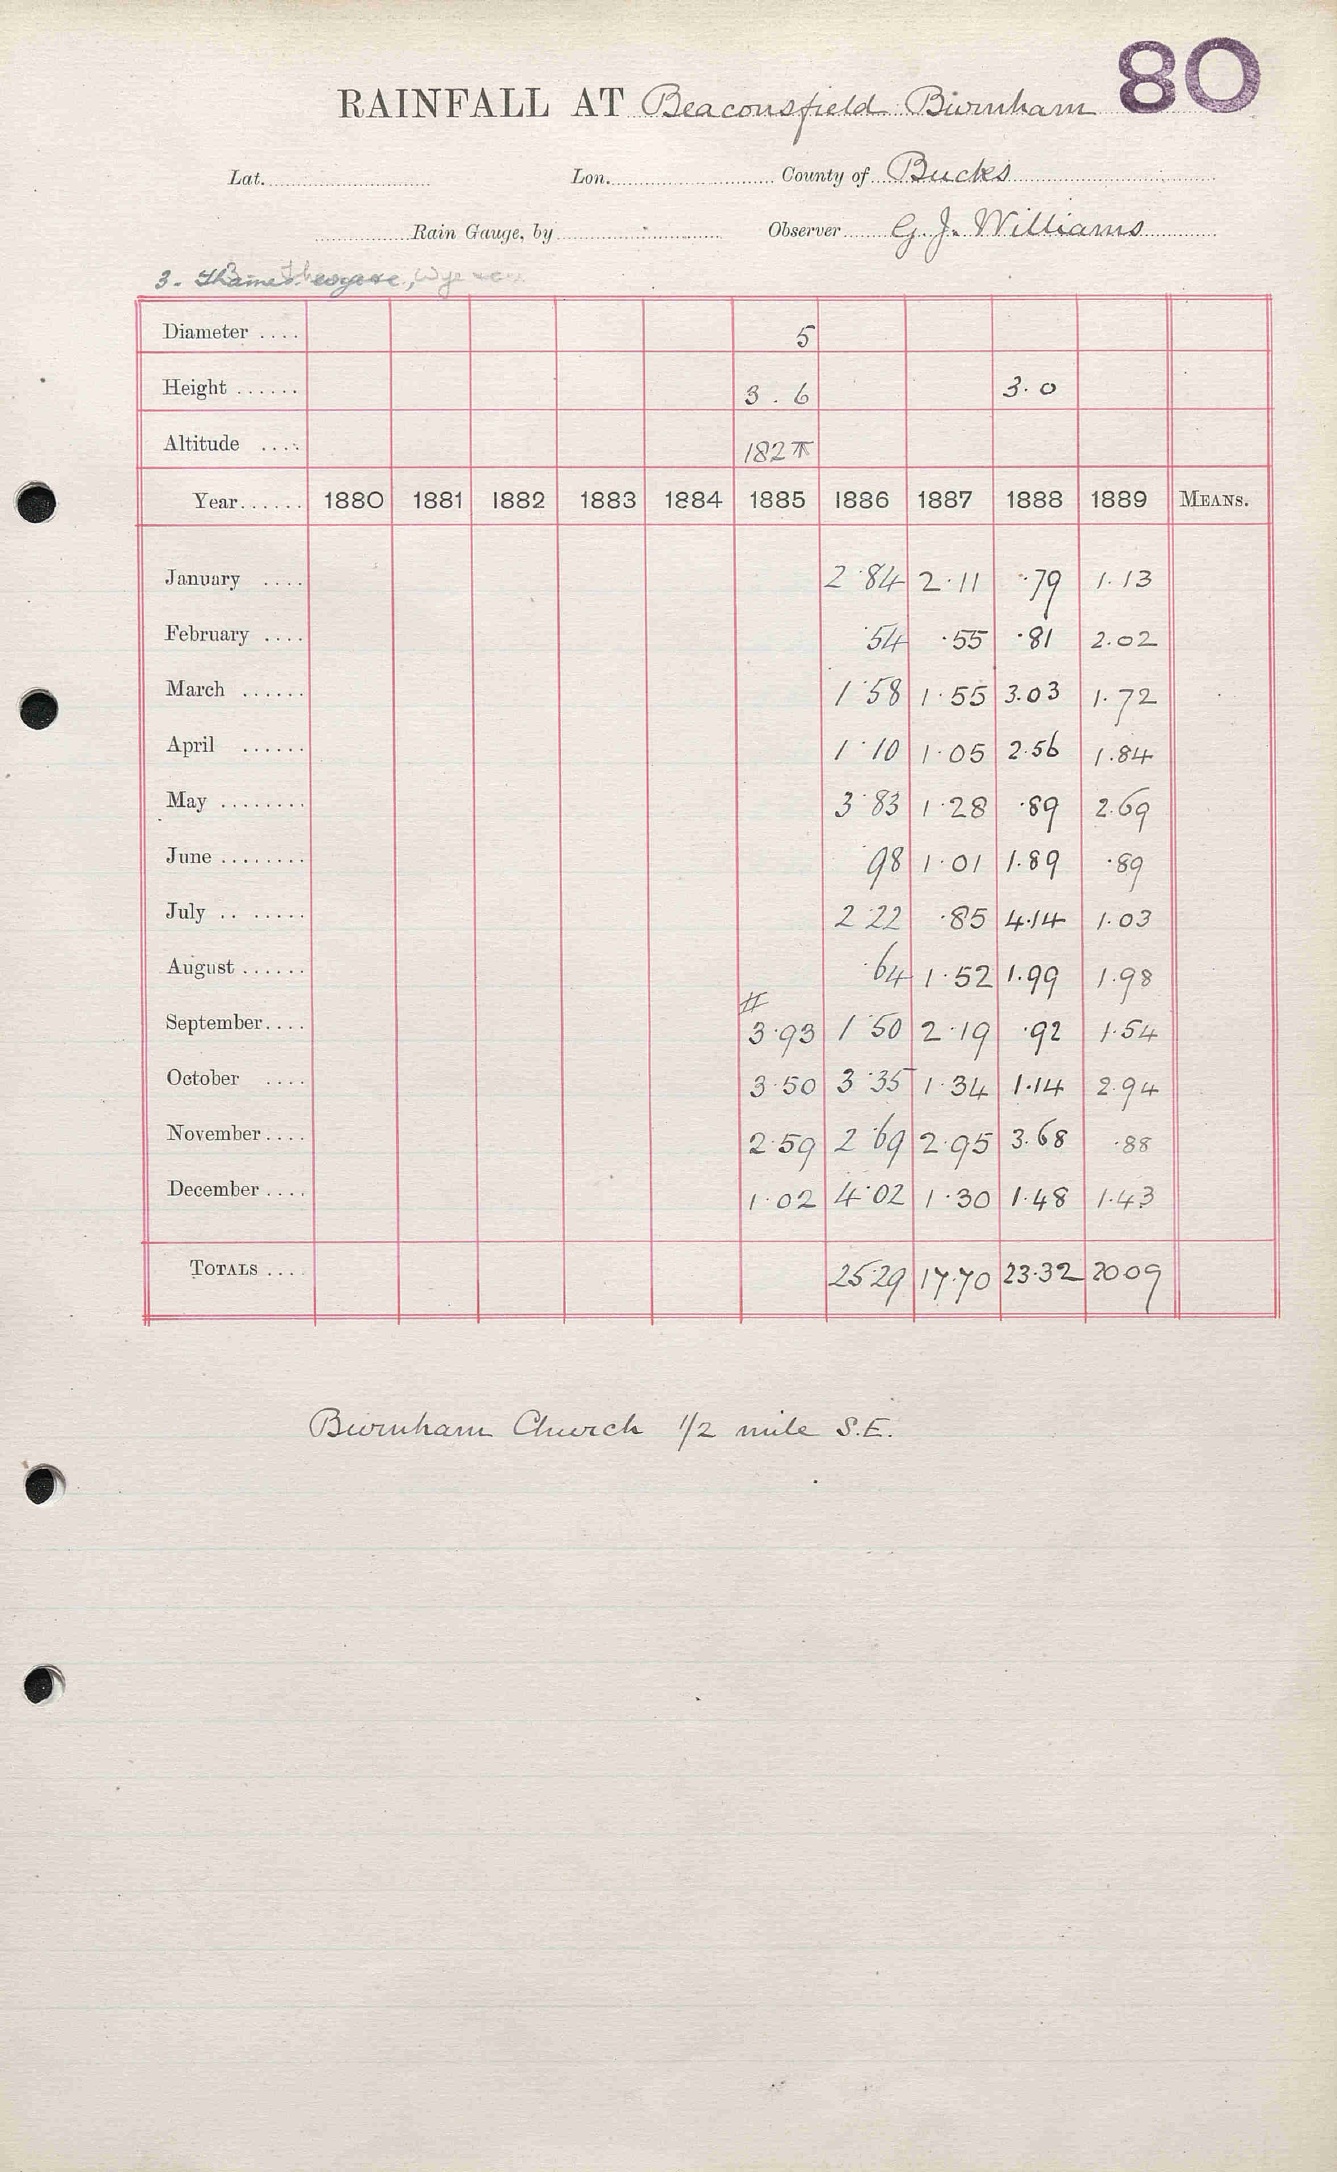 80
RAINFALL AT Beaconsfield Burnham
Lat. Lon. County of Bucks
Rain Gauge, by Observer G. J. Williams
3. Thames
Diameter .... 5
Height ...... 3 . 6 3.0
Altitude .... 182
Year...... 1880 1881 1882 1883 1884 1885 1886 1887 1888 1889 MEANS.
January .... 2.84 2.11 .79 1.13
February .... .54 .55 .81 2.02
March ...... 1.58 1.55 3.03 1.72
April ...... 1.10 1.05 2.56 1.84
May ........ 3.83 1.28 .89 2.69
June ........ .98 1.01 1.89 .89
July .. ..... 2.22 .85 4.14 1.03
August ...... .64 1.52 1.99 1.98
#
September.... 3.93 1.50 2.19 .92 1.54
October .... 3.50 3.35 1.34 1.14 2.94
November.... 2.59 2.69 2.95 3.68 .88
December .... 1.02 4.02 1.30 1.48 1.43
TOTALS .... 25.29 17.70 23.32 20.09
Burnham Church 1/2 mile S.E.